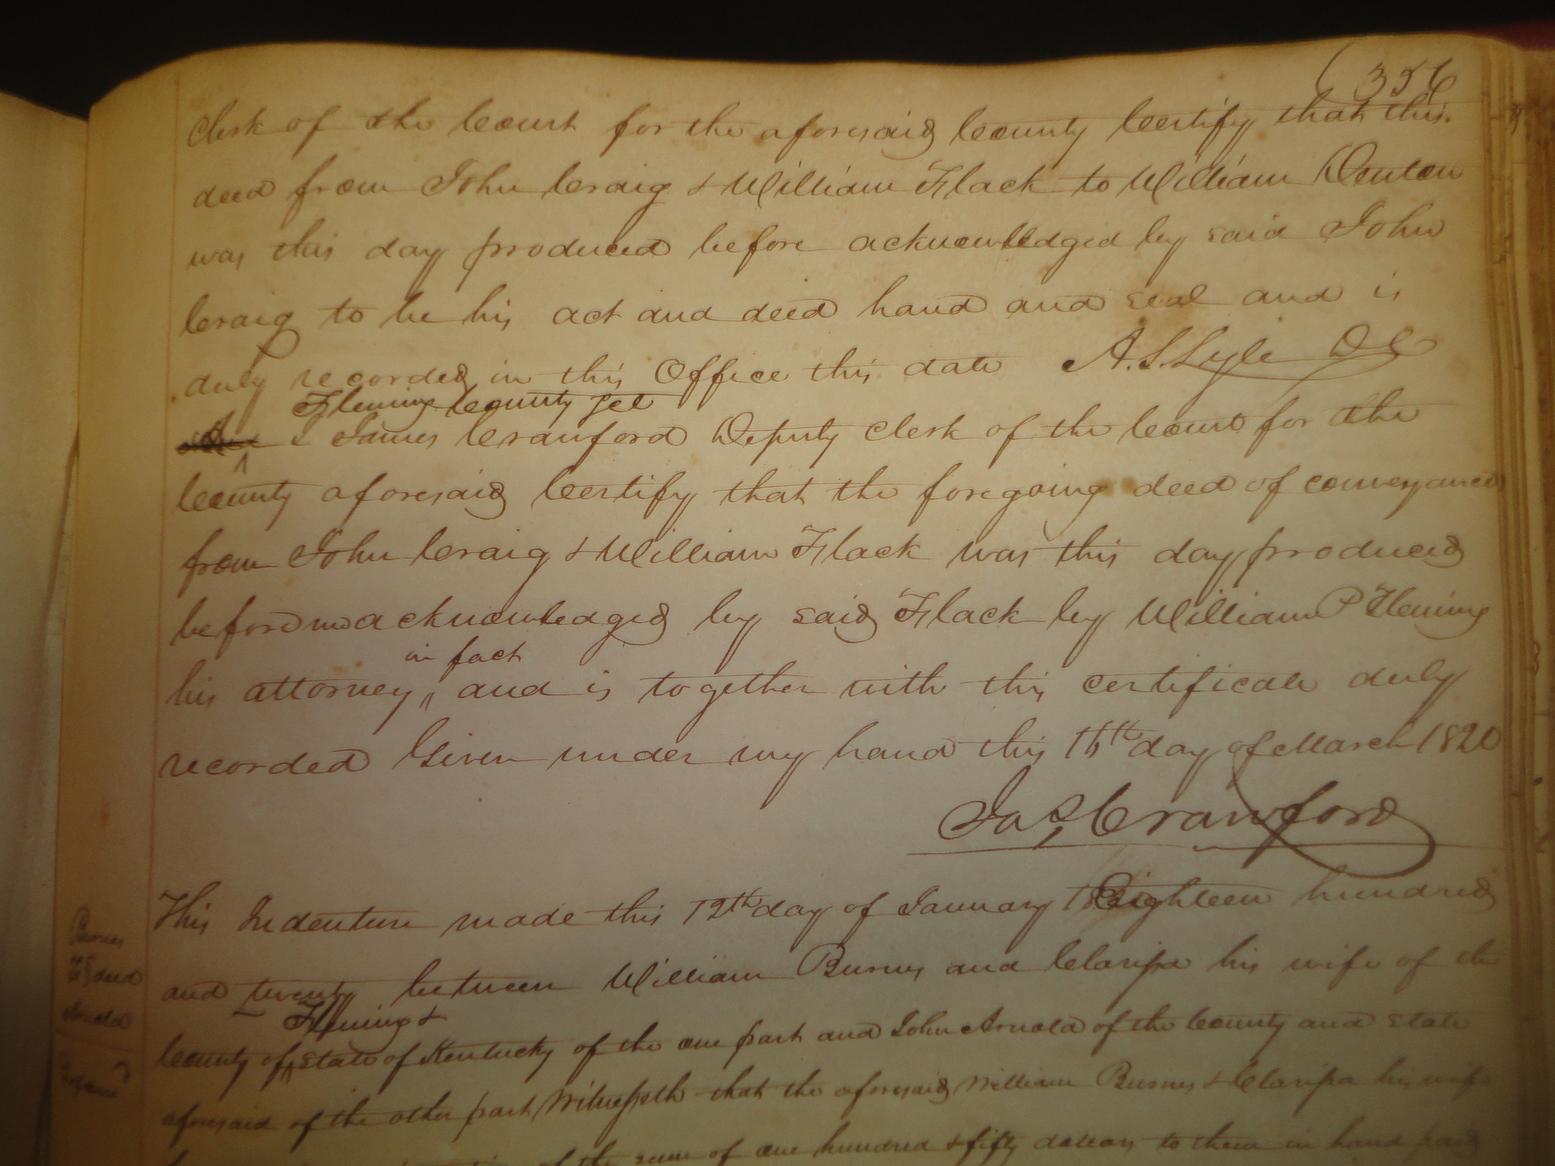 (356
Clerk of the Court for the aforesaid County Certify that this
deed from John Craig & William Flack to William Denton
was this day produced before acknowledged by said John
Craig to be his act and deed hand and seal and is
duly recorded in this Office this date A. S. Lyle DC
Fleming County Sct
I James Crawford Deputy Clerk of the Court for the
County aforesaid Certify that the foregoing deed of conveyance
from John Craig & William Flack was this day produced
before me acknowledged by said Flack by William P Fleming
in fact
his attorney ^ and is together with this certificate duly
recorded Given under my hand this 16th day of March 1820
Jas Crawford
This Indenture made this 12th day of January Eighteen hundred
and twenty between William Burns and Clarissa his wife of the
Fleming &
County of ^ state of Kentucky of the one part and John Arnold of the County and state
aforesaid of the other part Witnesseth that the aforesaid William Burns & Clarissa his wife
of the sum of one hundred & fifty dollars to them in hand paid
Burns
To } deed
Arnold